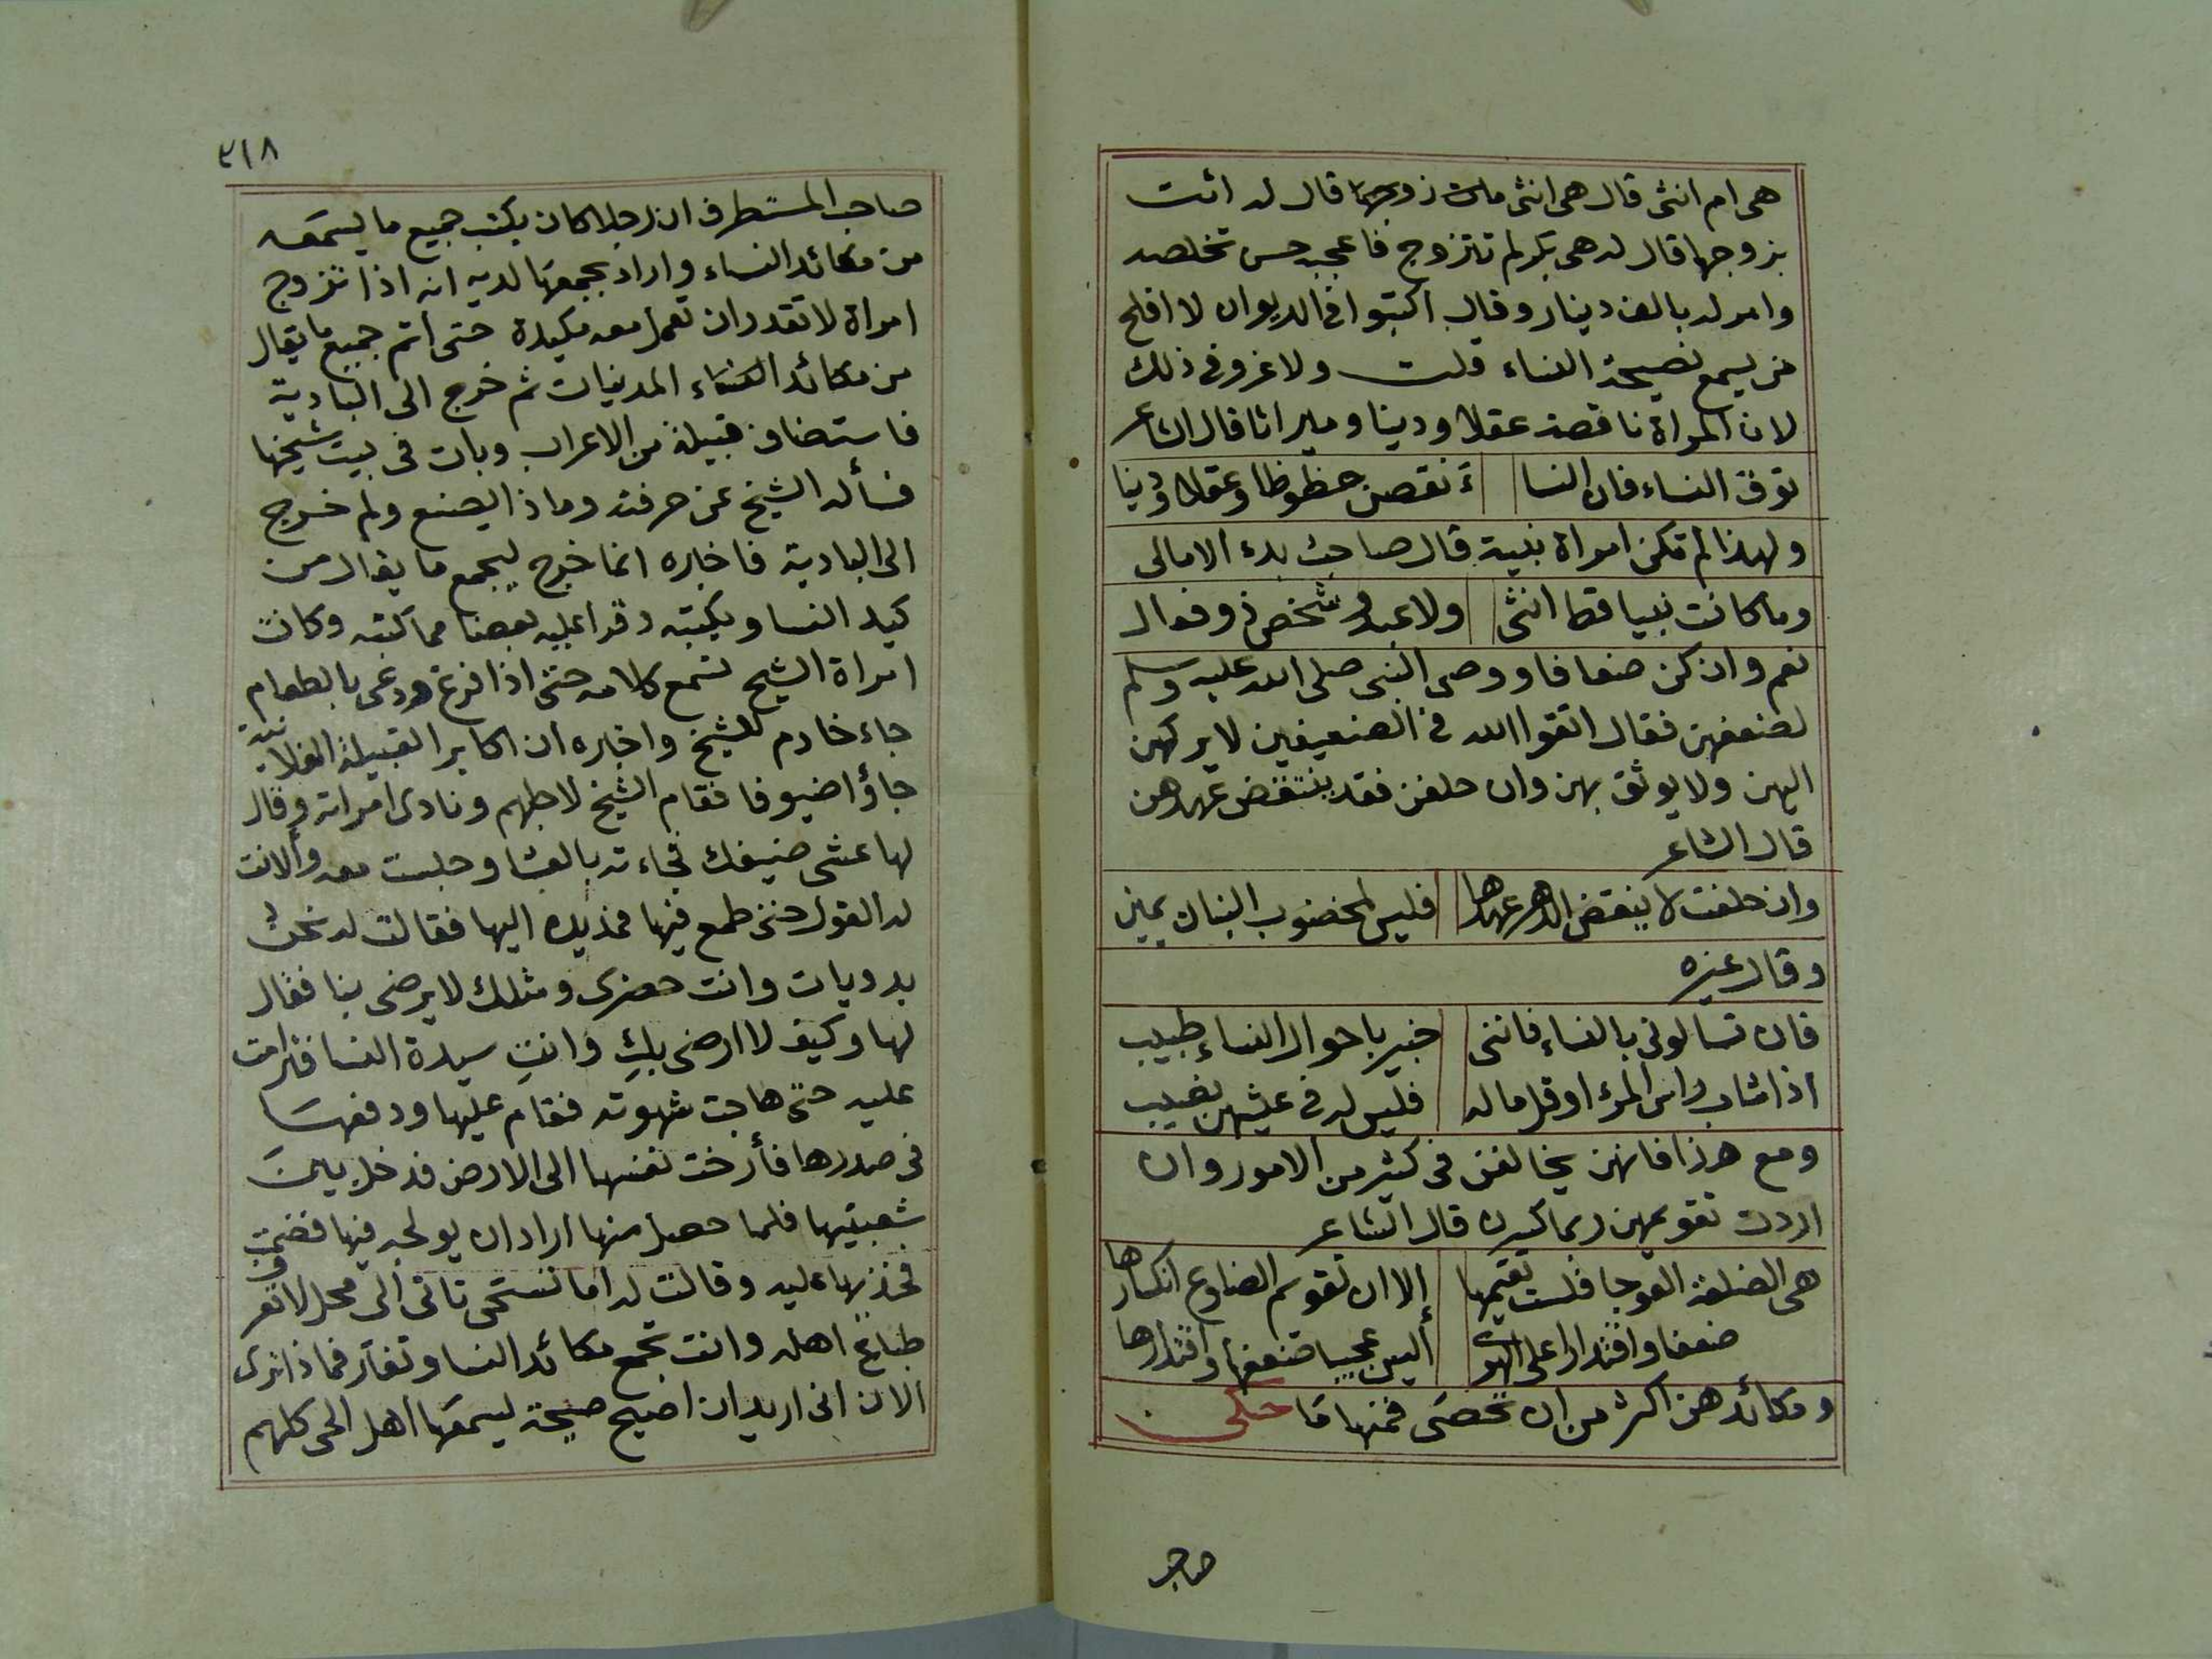 هى ام انثى قال هى انثى مات زوجها قال له ائت
بزوجها قال له هى بكر لم تتزوج فاعجبه حسن تخلصه
وامر له بالف دينار وقال اكتبوا فى الديوان لا افلح
من يسمع نصيحة النساء قلت ولا غرو فى ذلك
لان المراة ناقصة عقلا ودينا وميراثا قال الشاعر
توق النساء فان النسا ء نقصن حظوظا وعقلا ودينا
ولهذا لم تكن امراة نبية قال صاحب بدء الامالى
وما كانت نبيا قط انثى ولا عبد وشخص ذو فعال
نعم وان كن ضعافا ووصى النبى صلى الله عليه وسلم
لضعفهن فقال اتقوا الله فى الضعيفين لا يركن
اليهن ولا يوثق بهن وان حلفن فقد ينتقض عهدهن
قال الشاعر
وان حلفت لا ينقض الدهر عهدها فليس لمخضوب البنان يمين
وقال غيره
فان تسالونى بالنساء فاننى خبير باحوال النساء طبيب
اذا شاب راس المرء او قل ماله فليس له فى عيشهن نصيب
ومع هذا فانهن يخالفن فى كثير من الامور وان
اردت تقويمهن ربما كسرن قال الشاعر
هى الضلعة العوجا فلست تقيمها إلا ان تقويم الضلوع انكسارها
ضعفا واقتدارا على الهوى أليس عجيبا ضعفها واقتدارها
ومكائدهن اكثر من ان تحصى فمنها ما حكى
صاحب
٣١٨
صاحب المستطرف ان رجلا كان يكتب جميع ما يسمعه
من مكائد النساء واراد بجمعها لديه انه اذا تزوج
امراة لا تقدر ان تعمل معه مكيدة حتى أتم جميع ما يقال
من مكائد النساء المدنيات ثم خرج الى البادية
فاستضاف قبيلة من الاعراب وبات فى بيت شيخها
فسأله الشيخ عن حرفته وماذا يصنع ولم خرج
الى البادية فاخبره انما خرج ليجمع ما يقال من
كيد النسا ويكتبه وقرا عليه بعضا مما كتبه وكانت
امراة الشيخ تسمع كلامه حتى اذا فرغ ودعى بالطعام
جاء خادم للشيخ واخبره ان اكابر القبيلة الفلانية
جاؤا ضيوفا فقام الشيخ لاجلهم ونادى امراته وقال
لها عشى ضيفك فجاءته بالعشا وجلست معه وألانت
له القول حتى طمع فيها فمد يده اليها فقالت له نحن
بدويات وانت حضرى ومثلك لا يرضى بنا فقال
لها وكيف لا ارضى بكِ وانتِ سيدة النسا فترامت
عليه حتى هاجت شهوته فقام عليها ودفعها
فى صدرها فأرخت نفسها الى الارض فدخل بين
شعبتيها فلما حصل منها اراد ان يولجه فيها فضمت
فخذيها عليه وقالت له اما تستحى تاتى الى محل لا تعرف
طبائع اهله وانت تجمع مكائد النسا وتفاَر فماذا ترى
الان انى اريد ان اصيح صيحة ليسمعها اهل الحى كلهم